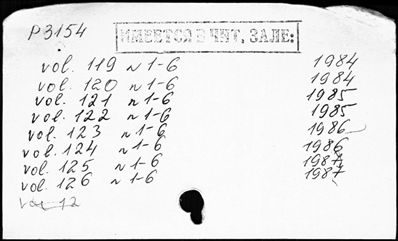 P3154
ИМЕЕТСЯ В ЧИТ. ЗАЛЕ:
vol. 119 n 1-6 1984
vol. 120 n 1-6 1984
vol. 121 n 1-6 1985
vol. 122 n 1-6 1985
vol. 123 n 1-6 1986
vol. 124 n 1-6 1986
vol. 125 n 1-6 1987
vol. 126 n 1-6 1987
vol 12